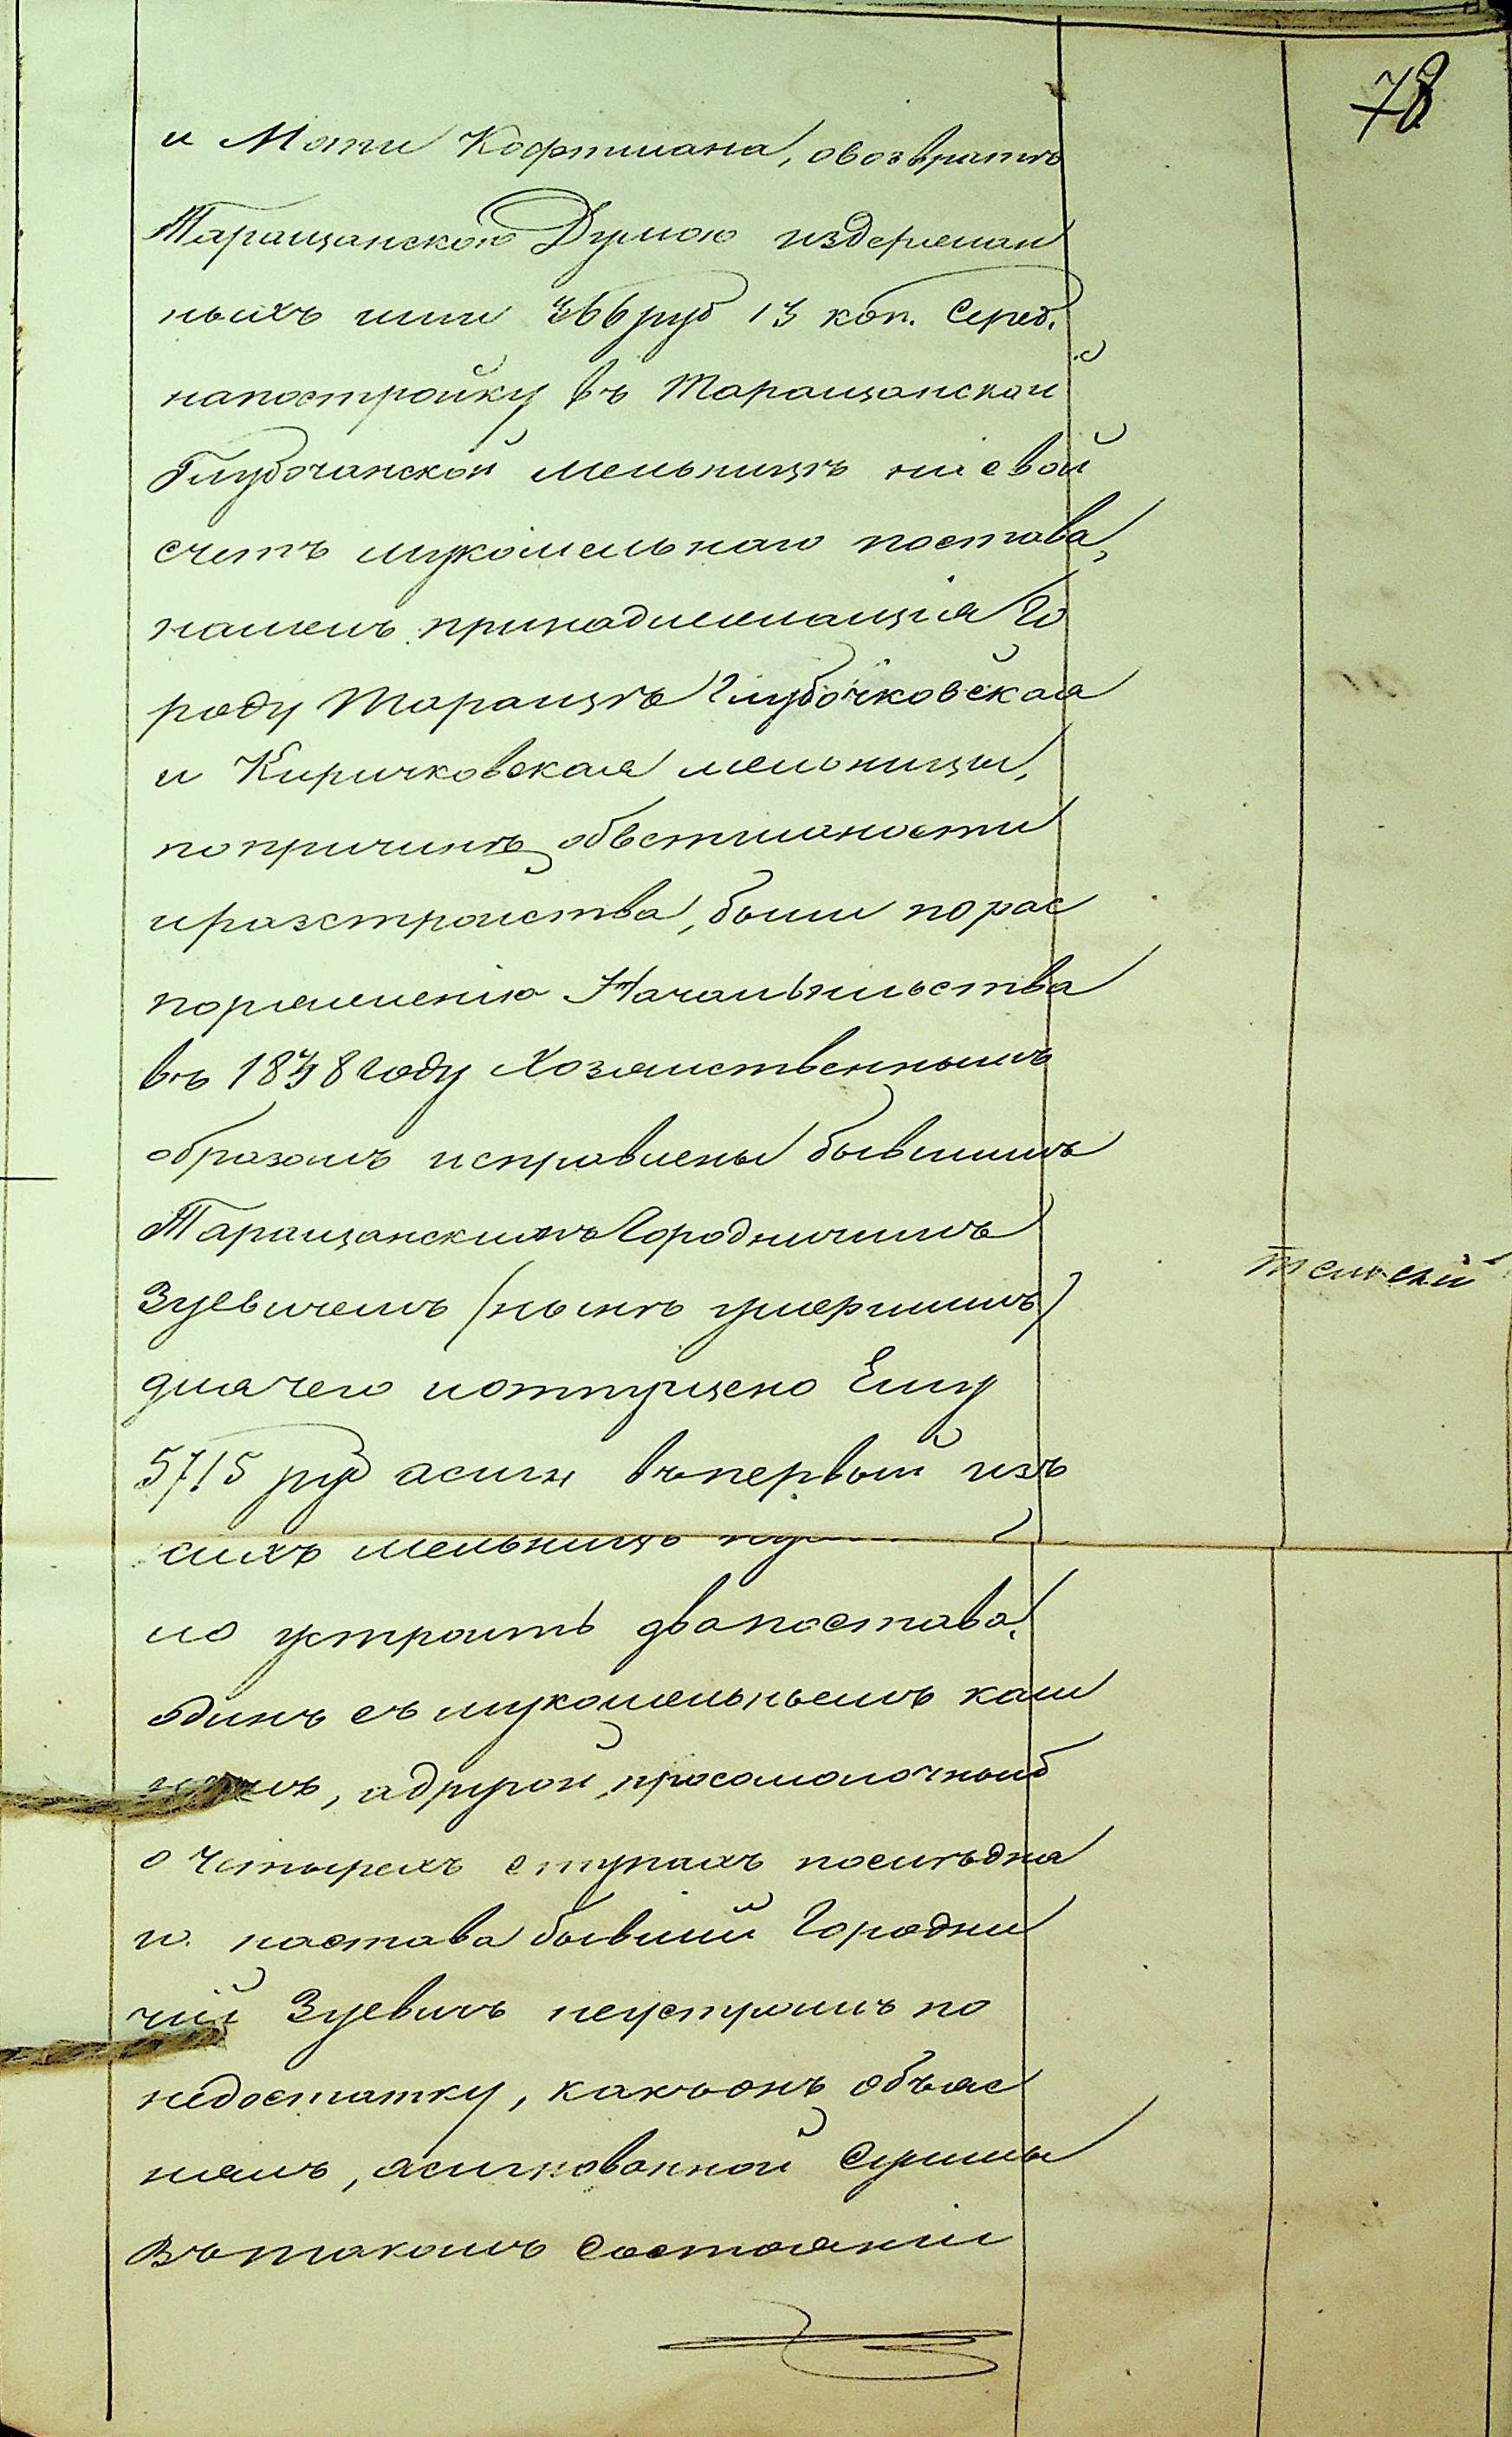 78
и Моти Кофтмана, овозвратѣ
Таращанскою Думою издержан
ныхъ ими 366 руб 13 коп. Сереб.
напостройку въ Таращанской
Глубочанской мельницѣ на свой
счетъ мукомельнаго постава,
нашелъ: принадлежащія Го
роду Таращѣ Глубочковская
и Киричковская мельницы,
попричинѣ обветшалости
иразстройства, были по рас
поряженію Начальства
въ 1848 году Хозяйственнымъ
образомъ исправлены бывшимъ
Таращанскимъ Городничимъ
Зуевичемъ (нынѣ умершимъ)
длячего иотпущено Ему
5715 руб асигн въпервой изъ
сихъ мельницъ
ло устроить двапостава:
одинъ съ мукомельнымъ кам
немъ, адругой просомолочный
о четырехъ ступахъ послѣдня
го постава бывшій Городни
чій Зуевичъ неустроилъ по
недостатку, какъонъ объяс
нялъ, асигнованной Суммы
Вътакомъ Состояніи